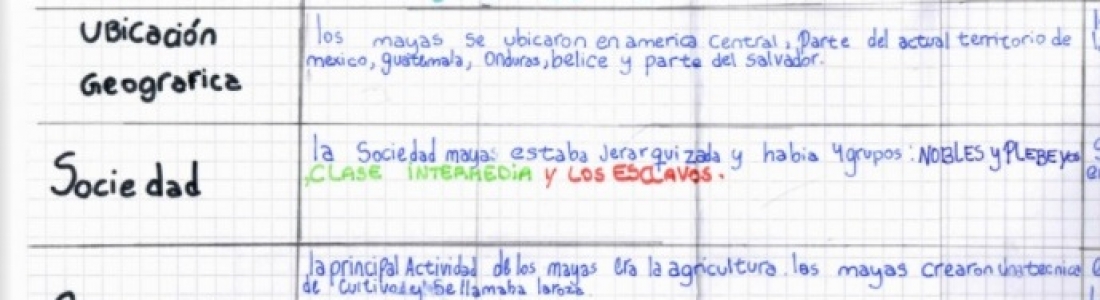 UBicación
Geografica
los mayas se ubicaron en america central, Parte del actual territorio de
mexico, guatemala, Onduras, belice y parte del salvador.
Sociedad
la Sociedad mayas estaba Jerarquizada y habia 4 grupos: NOBLES y PLEBEyos
CLASE INTERMEDIA y LOS ESCLAVOS.
la principal Actividad de los mayas era la agricultura. los mayas crearon una tecnica
de cultivo y se llamaba la roza.